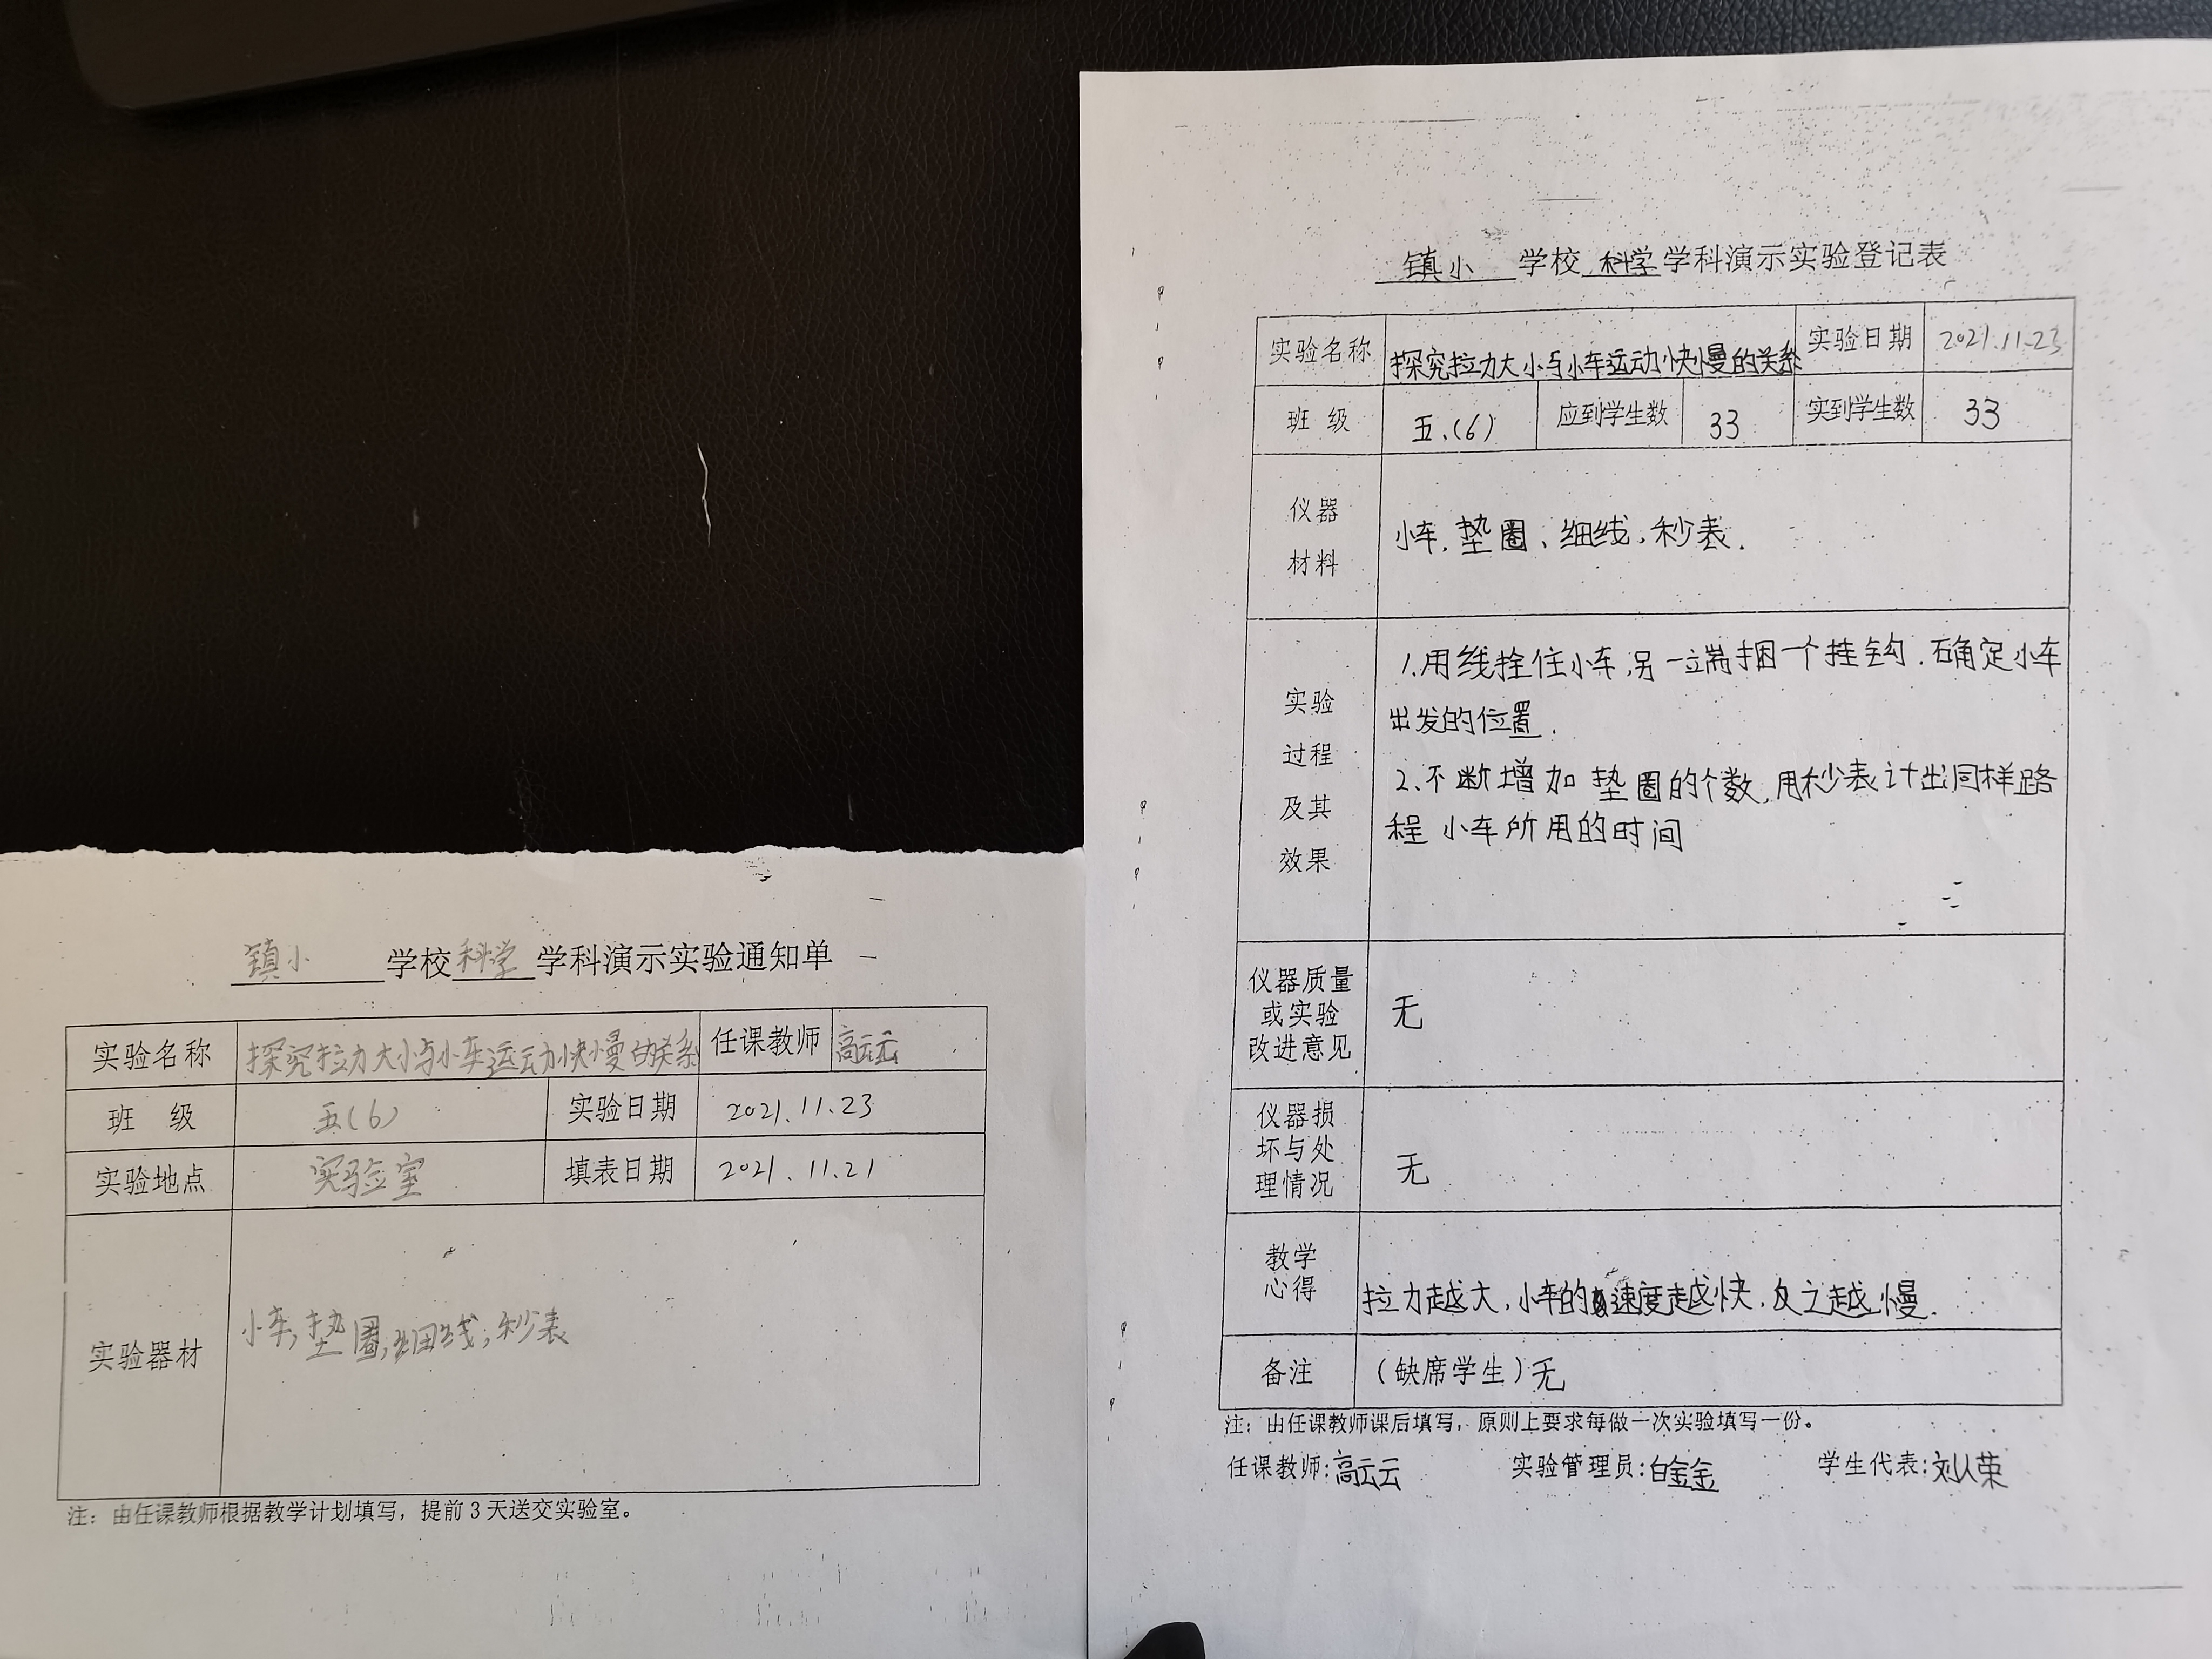 镇小 学校 科学 学科演示实验通知单
实验名称 探究拉力大小与小车运动快慢的关系 任课教师 高云云
班 级 五(6) 实验日期 2021.11.23
实验地点 实验室 填表日期 2021.11.21
实验器材 小车,垫圈,细线,秒表
注：由任课教师根据教学计划填写，提前3天送交实验室。
镇小 学校 科学 学科演示实验登记表
实验名称 探究拉力大小与小车运动快慢的关系 实验日期 2021.11.23
班 级 五.(6) 应到学生数 33 实到学生数 33
仪器
材料
小车.垫圈、细线、秒表.
实验
过程
及其
效果
1.用线拴住小车,另一端捆一个挂钩.确定小车
出发的位置.
2.不断增加垫圈的个数,用秒表计出同样路
程小车所用的时间
仪器质量
或实验
改进意见
无
仪器损
坏与处
理情况
无
教学
心得
拉力越大,小车的速度越快.反之越慢.
备注 （缺席学生）无
注：由任课教师课后填写，原则上要求每做一次实验填写一份。
任课教师:高云云 实验管理员:白金金 学生代表:刘从荣